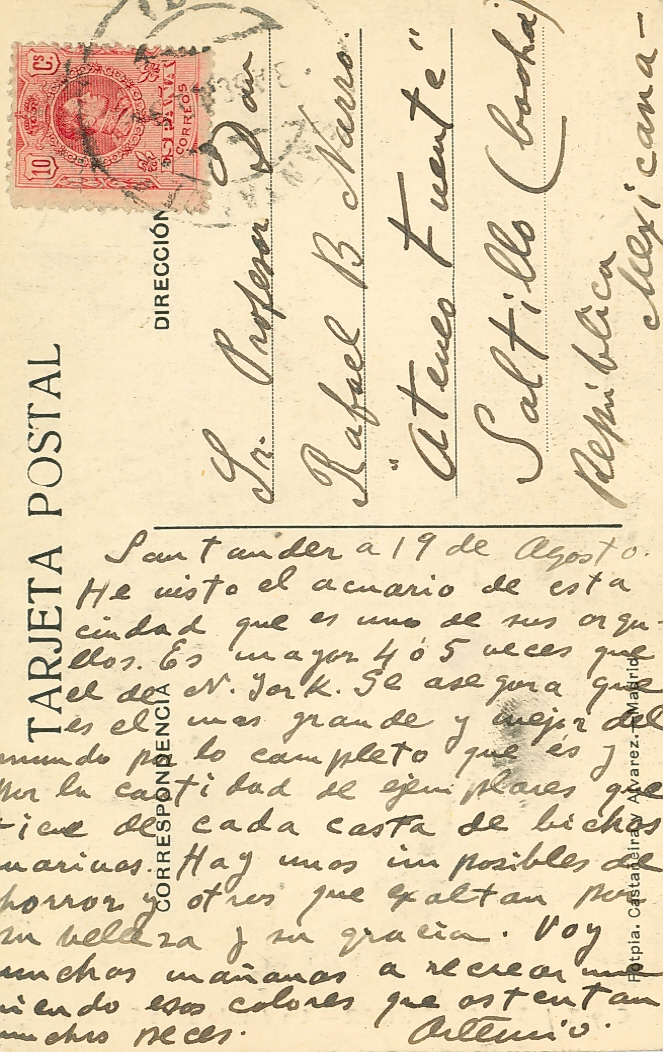 TARJETA POSTAL
DIRECCIÓN
10 Cs
ESPAÑA
CORREOS
Sr. Profesor Don
Rafael B Narro.
"Ateneo Fuente"
Saltillo (Coaha)
República
Mexicana-
CORRESPONDENCIA
Santander a 19 de Agosto.
He visto el acuario de esta
ciudad que es uno de sus orgu-
llos. Es mayor 4 ó 5 veces que
el de N. York. Se asegura que
es el mas grande y mejor del
mundo por lo completo que és y
por la cantidad de ejemplares que
tiene de cada casta de bichos
marinos. Hay unos imposibles de
horror y otros que exaltan por
su belleza y su gracia. Voy
muchas mañanas a recrearme
viendo esos colores que ostentan
muchos peces. Artemio.
Fotpia. Castañeira y Alvarez. Madrid